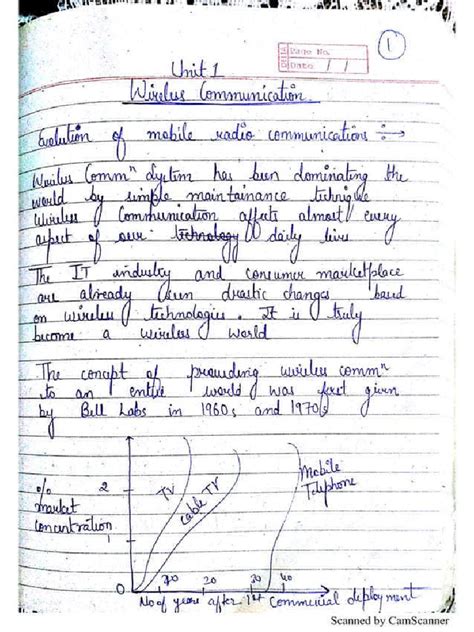 Page No.
Date / /
1
Unit 1
Wireless Communication
Evolution of mobile radio communications :→
Wireless Commⁿ System has been dominating the
world by simple maintainance technique
Wireless Communication affects almost every
aspect of our technology daily lives
The IT industry and consumer marketplace
are already seen drastic changes based
on wireless technologies. It is truly
become a wireless world
The concept of provuding wireless commⁿ
to an entire world was first given
by Bell Labs in 1960s and 1970s
% market concentration
2
1
0
TV
Cable TV
Mobile Telephone
10 20 30 40
No of years after 1st Commercial deployment
Scanned by CamScanner